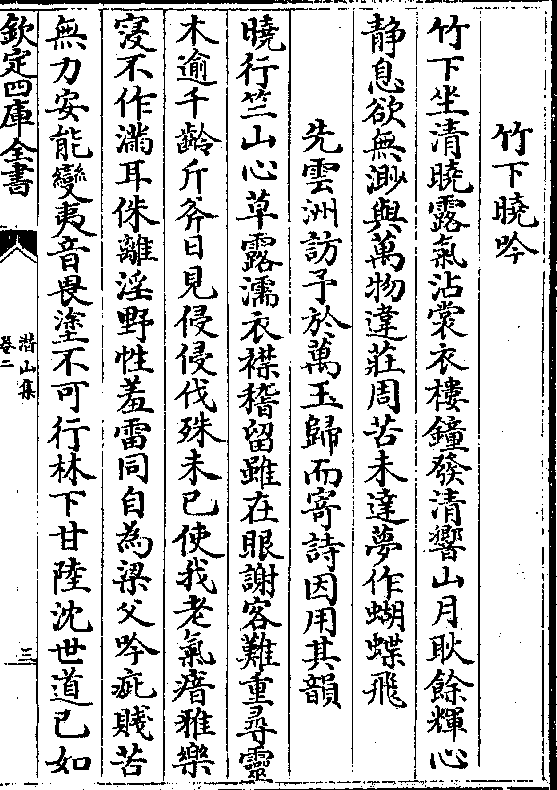 竹下曉吟
竹下坐清曉露氣沾裳衣樓鐘發清響山月耿餘輝心
静息欲無渺與萬物違莊周苦未達夢作蝴蝶飛
先雲洲訪予於萬玉歸而寄詩因用其韻
曉行竺山心草露濡衣襟稽留雖在眼謝客難重尋靈
木逾千齡斤斧日見侵侵伐殊未已使我老氣瘖雅樂
寖不作滿耳侏離淫野性羞雷同自為梁父吟疵賤苦
無力安能變夷音畏塗不可行林下甘陸沈世道已如
欽定四庫全書
潛山集
卷二
三